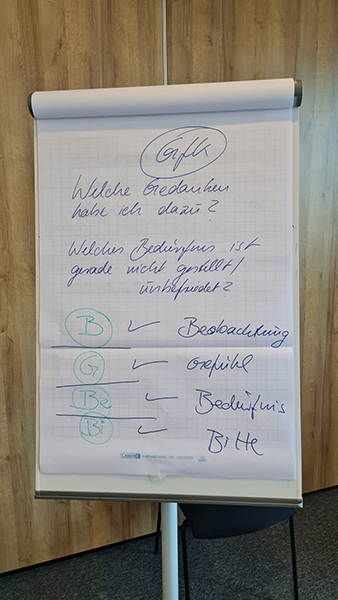 GfK
Welche Gedanken
habe ich dazu?
Welches Bedürfnis ist
gerade nicht gestillt/
unbefriedet?
B ✓ Beobachtung
G ✓ Gefühl
Be ✓ Bedürfnis
Bi ✓ Bitte